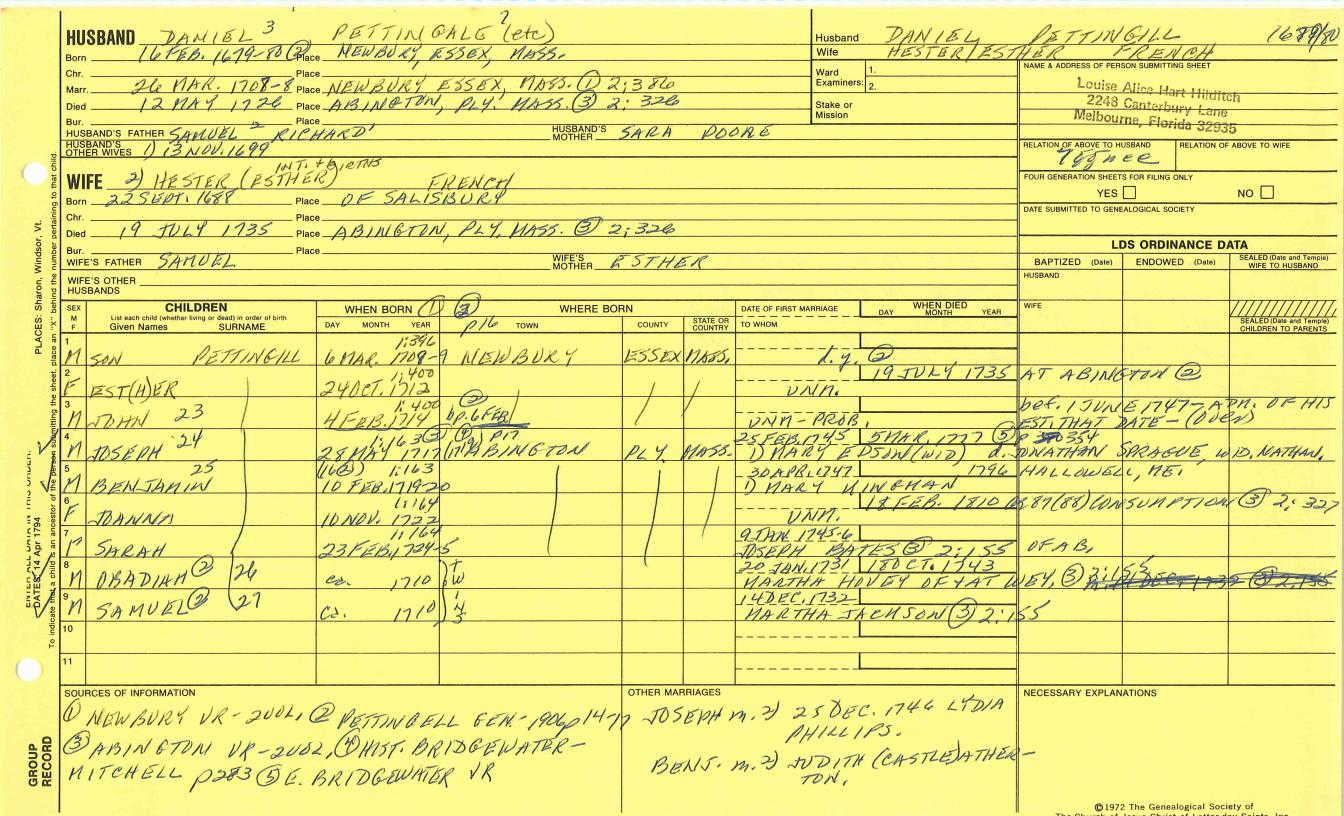 HUSBAND DANIEL 3 PETTINGALE ? (etc)
Born 16 FEB. 1679-80 ② Place NEWBURY, ESSEX, MASS.
Chr. Place
Marr. 26 MAR. 1708-8 Place NEWBURY ESSEX, MASS. ① 2;386
Died 12 MAY 1726 Place ABINGTON, PLY, MASS. ③ 2; 326
Bur. Place
HUSBAND'S FATHER SAMUEL 2 RICHARD' HUSBAND'S MOTHER SARA POORE
HUSBAND'S OTHER WIVES 1) 13 NOV. 1699
INT. + BIRTHS
WIFE 2) HESTER (ESTHER) FRENCH
Born 22 SEPT. 1688 Place OF SALISBURY
Chr. Place
Died 19 JULY 1735 Place ABINGTON, PLY. MASS. ③ 2; 326
Bur. Place
WIFE'S FATHER SAMUEL WIFE'S MOTHER ESTHER
WIFE'S OTHER HUSBANDS
Husband DANIEL PETTINGILL
Wife HESTER/ESTHER FRENCH
Ward Examiners: 1.
2.
Stake or Mission
NAME & ADDRESS OF PERSON SUBMITTING SHEET
Louise Alice Hart Hilditch
2248 Canterbury Lane
Melbourne, Florida 32935
RELATION OF ABOVE TO HUSBAND RELATION OF ABOVE TO WIFE
FOUR GENERATION SHEETS FOR FILING ONLY
YES NO
DATE SUBMITTED TO GENEALOGICAL SOCIETY
LDS ORDINANCE DATA
BAPTIZED (Date) ENDOWED (Date) SEALED (Date and Temple) WIFE TO HUSBAND
HUSBAND
WIFE
SEALED (Date and Temple) CHILDREN TO PARENTS
SEX M F
CHILDREN
List each child (whether living or dead) in order of birth
Given Names SURNAME
WHEN BORN ①
DAY MONTH YEAR
WHERE BORN
p16 TOWN COUNTY STATE OR COUNTRY
DATE OF FIRST MARRIAGE
TO WHOM
WHEN DIED
DAY MONTH YEAR
1 M SON PETTINGILL 1:396 6 MAR. 1708-9 NEWBURY ESSEX MASS. d.y. ②
2 F EST(H)ER 1:400 24 OCT. 1712 UNM. 19 JULY 1735 AT ABINGTON ②
3 M JOHN 23 1:400 4 FEB. 1714 ② bp. 6 FEB UNM-PROB. bef. 1 JUNE 1747-ADM. OF HIS
EST. THAT DATE-
4 M JOSEPH 24 1:163 ③ 28 MAY 1717 ④ p17 ABINGTON PLY MASS. 25 FEB. 1745 5 MAR. 1777 ⑤ p 354
1) MARY EDSON (WID) d. JONATHAN SPRAGUE, WID. NATHAN.
5 M BENJAMIN 25 1:163 10 FEB. 1719-20 30 APR. 1747 1796 HALLOWELL, ME.
1) MARY KINGMAN
6 F JOANNA 1:164 10 NOV. 1722 UNM. 18 FEB. 1810 87(88) CONSUMPTION ③ 2; 327
7 F SARAH 1:164 23 FEB. 1724-5 9 JAN. 1745-6
JOSEPH BATES ③ 2:155 OF AB.
8 M OBADIAH ② 26 ca. 1710 20 JAN. 1731 18 OCT. 1743
MARTHA HOVEY OF Y AT WEY. ③ 2:155
9 M SAMUEL ② 27 ca. 1710 14 DEC. 1732
MARTHA JACKSON ③ 2:155
10
11
SOURCES OF INFORMATION
① NEWBURY VR-2VOL, ② PETTINGELL GEN.-1906 p 14-17
③ ABINGTON VR-2VOL, ④ HIST. BRIDGEWATER-
MITCHELL p283 ⑤ E. BRIDGEWATER VR
OTHER MARRIAGES
JOSEPH m. 2) 25 DEC. 1746 LYDIA
PHILLIPS.
BENJ. m. 2) JUDITH (CASTLE) ATHER-
TON.
NECESSARY EXPLANATIONS
GROUP RECORD
PLACES: Sharon, Windsor, Vt.
DATES: 14 Apr 1794
©1972 The Genealogical Society of